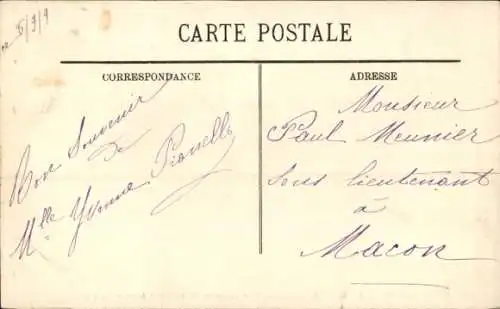 5/9/9
CARTE POSTALE
CORRESPONDANCE
Bon Souvenir
de
Mlle Yvonne
ADRESSE
Monsieur
Paul Meunier
Sous lieutenant
à
Macon